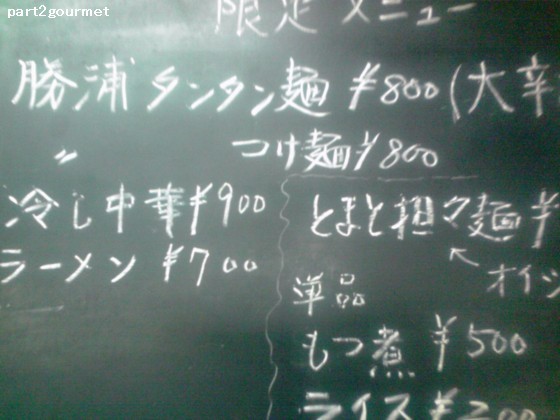 part2gourmet
限定メニュー
勝浦タンタン麺 ¥800 (大辛
〃 つけ麺 ¥800
冷し中華 ¥900
ラーメン ¥700
とまと担々麺 ¥
↖ オイシ
単品
もつ煮 ¥500
ライス ¥200